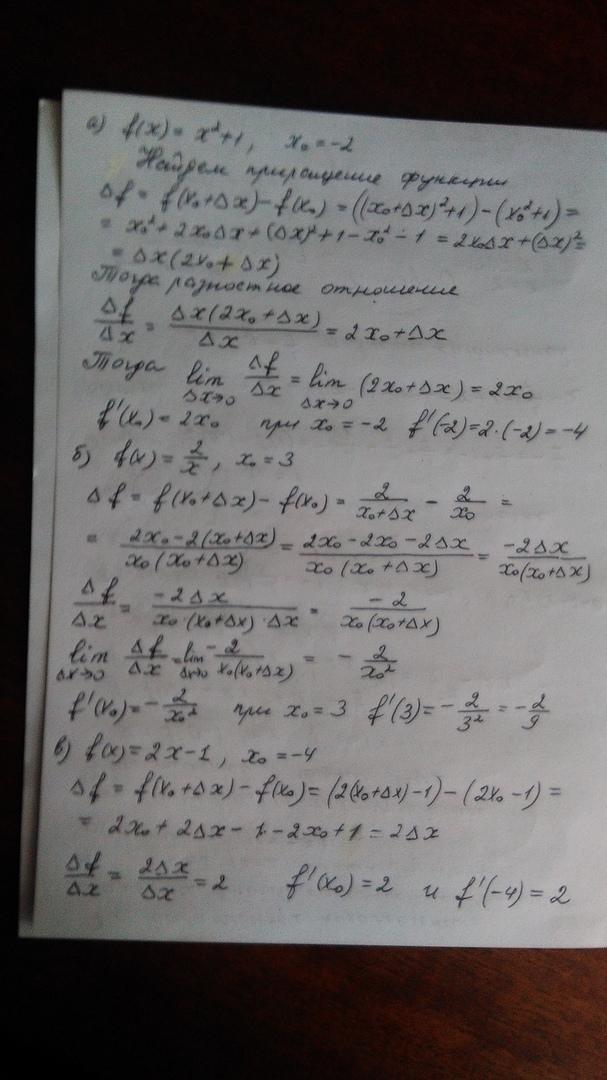 а) f(x) = x²+1, x₀ = -2
Найдем приращение функции
Δf = f(x₀+Δx) - f(x₀) = ((x₀+Δx)²+1) - (x₀²+1) =
= x₀² + 2x₀Δx + (Δx)² + 1 - x₀² - 1 = 2x₀Δx + (Δx)² =
= Δx(2x₀ + Δx)
Тогда разностное отношение
Δf/Δx = Δx(2x₀+Δx)/Δx = 2x₀+Δx
Тогда lim Δx→0 Δf/Δx = lim Δx→0 (2x₀+Δx) = 2x₀
f'(x₀) = 2x₀ при x₀ = -2 f'(-2) = 2·(-2) = -4
б) f(x) = 2/x, x₀ = 3
Δf = f(x₀+Δx) - f(x₀) = 2/(x₀+Δx) - 2/x₀ =
= (2x₀ - 2(x₀+Δx))/(x₀(x₀+Δx)) = (2x₀ - 2x₀ - 2Δx)/(x₀(x₀+Δx)) = -2Δx/(x₀(x₀+Δx))
Δf/Δx = -2Δx/(x₀·(x₀+Δx)·Δx) = -2/(x₀(x₀+Δx))
lim Δx→0 Δf/Δx = lim Δx→0 -2/(x₀(x₀+Δx)) = - 2/x₀²
f'(x₀) = - 2/x₀² при x₀ = 3 f'(3) = - 2/3² = - 2/9
в) f(x) = 2x-1, x₀ = -4
Δf = f(x₀+Δx) - f(x₀) = (2(x₀+Δx)-1) - (2x₀-1) =
= 2x₀ + 2Δx - 1 - 2x₀ + 1 = 2Δx
Δf/Δx = 2Δx/Δx = 2 f'(x₀) = 2 и f'(-4) = 2